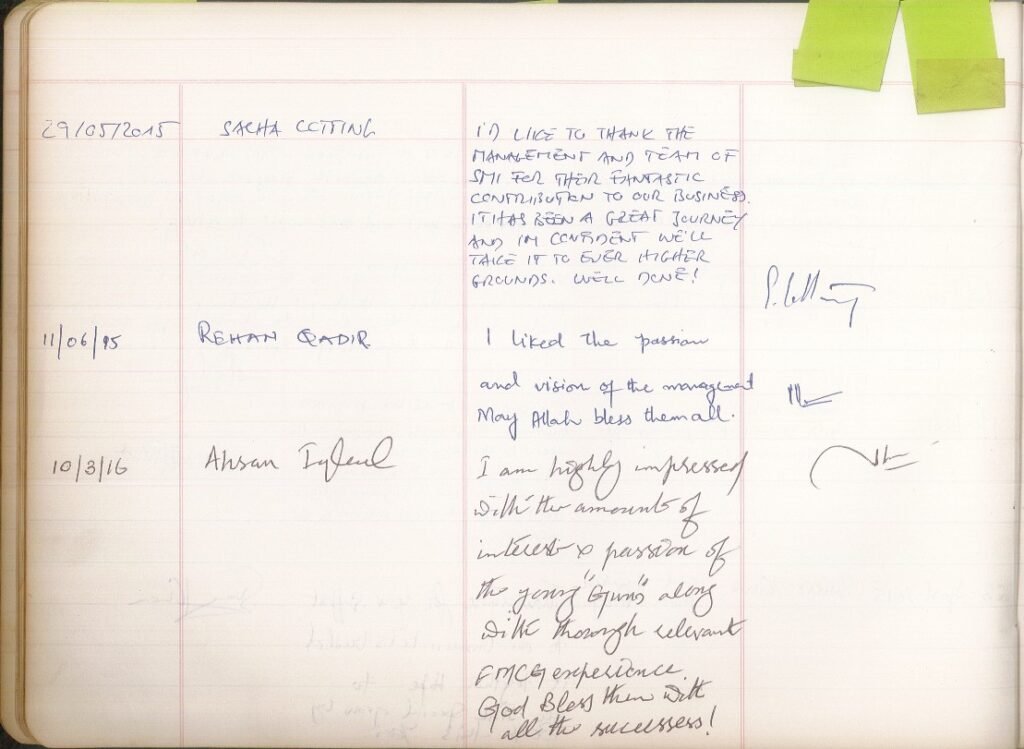 29/05/2015 SACHA COTTING I'D LIKE TO THANK THE
MANAGEMENT AND TEAM OF
SMI FOR THEIR FANTASTIC
CONTRIBUTION TO OUR BUSINESS.
IT HAS BEEN A GREAT JOURNEY
AND I'M CONFIDENT WE'LL
TAKE IT TO EVER HIGHER
GROUNDS. WELL DONE!
11/06/15 REHAN QADIR I liked the passion
and vision of the management
May Allah bless them all.
10/3/16 Ahsan I am highly impressed
with the amount of
interest & passion of
the young "Guns" along
with thorough relevant
FMCG experience.
God Bless them with
all the successess!